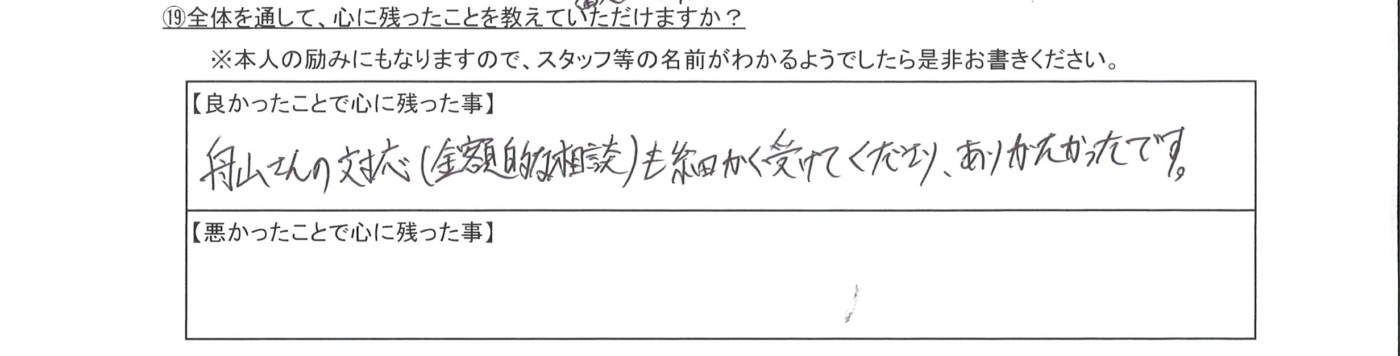 ⑲全体を通して、心に残ったことを教えていただけますか？
※本人の励みにもなりますので、スタッフ等の名前がわかるようでしたら是非お書きください。
【良かったことで心に残った事】
舟山さんの対応(金額的な相談)も細かく受けてくださり、ありがたかったです。
【悪かったことで心に残った事】